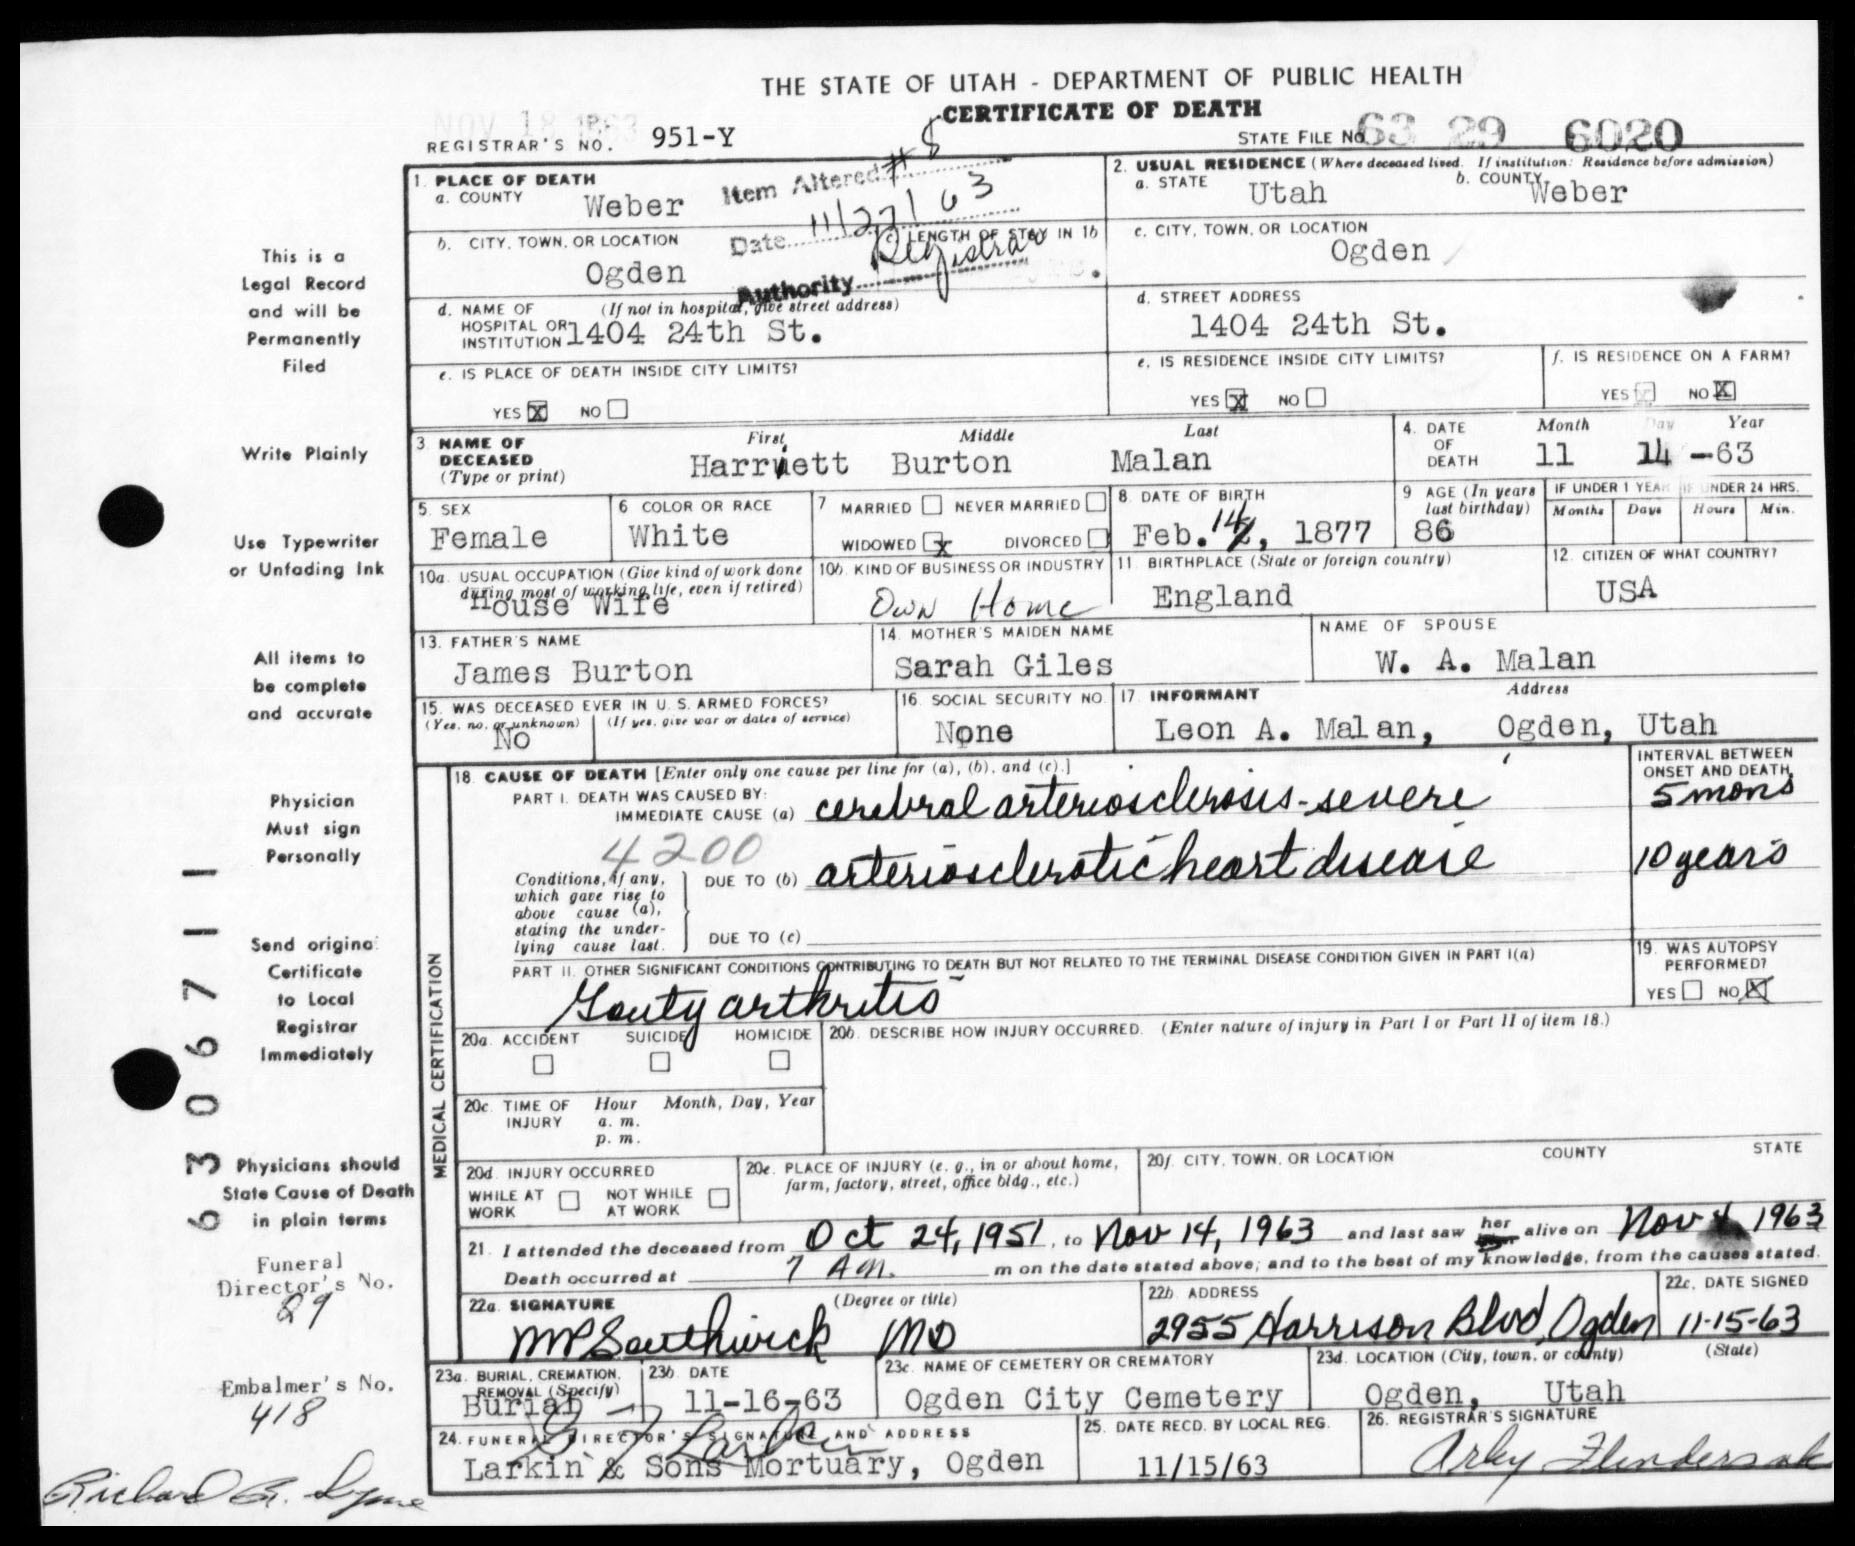 THE STATE OF UTAH - DEPARTMENT OF PUBLIC HEALTH
CERTIFICATE OF DEATH
NOV 18 1963
REGISTRAR'S NO. 951-Y
STATE FILE No. 63 29 6020
This is a
Legal Record
and will be
Permanently
Filed
Write Plainly
Use Typewriter
or Unfading Ink
All items to
be complete
and accurate
Physician
Must sign
Personally
Send original
Certificate
to Local
Registrar
Immediately
Physicians should
State Cause of Death
in plain terms
Funeral
Director's No.
29
Embalmer's No.
418
6306711
1. PLACE OF DEATH
a. COUNTY Weber
Item Altered #8
Date 11/27/63
Authority Registrar
2. USUAL RESIDENCE (Where deceased lived. If institution: Residence before admission)
a. STATE Utah b. COUNTY Weber
b. CITY, TOWN, OR LOCATION Ogden
c. LENGTH OF STAY IN 1b
c. CITY, TOWN, OR LOCATION Ogden
d. NAME OF HOSPITAL OR INSTITUTION (If not in hospital, give street address) 1404 24th St.
d. STREET ADDRESS 1404 24th St.
e. IS PLACE OF DEATH INSIDE CITY LIMITS?
YES X NO
e. IS RESIDENCE INSIDE CITY LIMITS?
YES X NO
f. IS RESIDENCE ON A FARM?
YES NO X
3. NAME OF DECEASED (Type or print)
First Middle Last
Harriett Burton Malan
4. DATE OF DEATH Month Day Year
11 14 -63
5. SEX Female
6 COLOR OR RACE White
7 MARRIED NEVER MARRIED
WIDOWED X DIVORCED
8. DATE OF BIRTH Feb. 14, 1877
9 AGE (In years last birthday) 86
IF UNDER 1 YEAR Months Days
IF UNDER 24 HRS. Hours Min.
10a. USUAL OCCUPATION (Give kind of work done during most of working life, even if retired) House Wife
10b. KIND OF BUSINESS OR INDUSTRY Own Home
11. BIRTHPLACE (State or foreign country) England
12. CITIZEN OF WHAT COUNTRY? USA
13. FATHER'S NAME James Burton
14. MOTHER'S MAIDEN NAME Sarah Giles
NAME OF SPOUSE W. A. Malan
15. WAS DECEASED EVER IN U. S. ARMED FORCES?
(Yes, no, or unknown) (If yes, give war or dates of service)
No
16. SOCIAL SECURITY NO. None
17. INFORMANT Address
Leon A. Malan, Ogden, Utah
MEDICAL CERTIFICATION
18. CAUSE OF DEATH [Enter only one cause per line for (a), (b), and (c).]
INTERVAL BETWEEN ONSET AND DEATH
PART I. DEATH WAS CAUSED BY:
IMMEDIATE CAUSE (a) cerebral arteriosclerosis - severe 5 mons
4200
Conditions, if any, which gave rise to above cause (a), stating the underlying cause last.
DUE TO (b) arteriosclerotic heart disease 10 years
DUE TO (c)
PART II. OTHER SIGNIFICANT CONDITIONS CONTRIBUTING TO DEATH BUT NOT RELATED TO THE TERMINAL DISEASE CONDITION GIVEN IN PART I(a)
Gouty arthritis
19. WAS AUTOPSY PERFORMED?
YES NO X
20a. ACCIDENT SUICIDE HOMICIDE
20b. DESCRIBE HOW INJURY OCCURRED. (Enter nature of injury in Part I or Part II of item 18.)
20c. TIME OF INJURY Hour a. m. p. m. Month, Day, Year
20d. INJURY OCCURRED
WHILE AT WORK NOT WHILE AT WORK
20e. PLACE OF INJURY (e. g., in or about home, farm, factory, street, office bldg., etc.)
20f. CITY, TOWN, OR LOCATION COUNTY STATE
21. I attended the deceased from Oct 24, 1951, to Nov 14, 1963 and last saw her alive on Nov 1963
Death occurred at 7 Am. m on the date stated above; and to the best of my knowledge, from the causes stated.
22a. SIGNATURE (Degree or title)
MP Southwick MD
22b. ADDRESS 2955 Harrison Blvd, Ogden
22c. DATE SIGNED 11-15-63
23a. BURIAL, CREMATION, REMOVAL (Specify) Burial
23b. DATE 11-16-63
23c. NAME OF CEMETERY OR CREMATORY Ogden City Cemetery
23d. LOCATION (City, town, or county) (State)
Ogden, Utah
24. FUNERAL DIRECTOR'S SIGNATURE AND ADDRESS
Larkin & Sons Mortuary, Ogden
25. DATE RECD. BY LOCAL REG. 11/15/63
26. REGISTRAR'S SIGNATURE